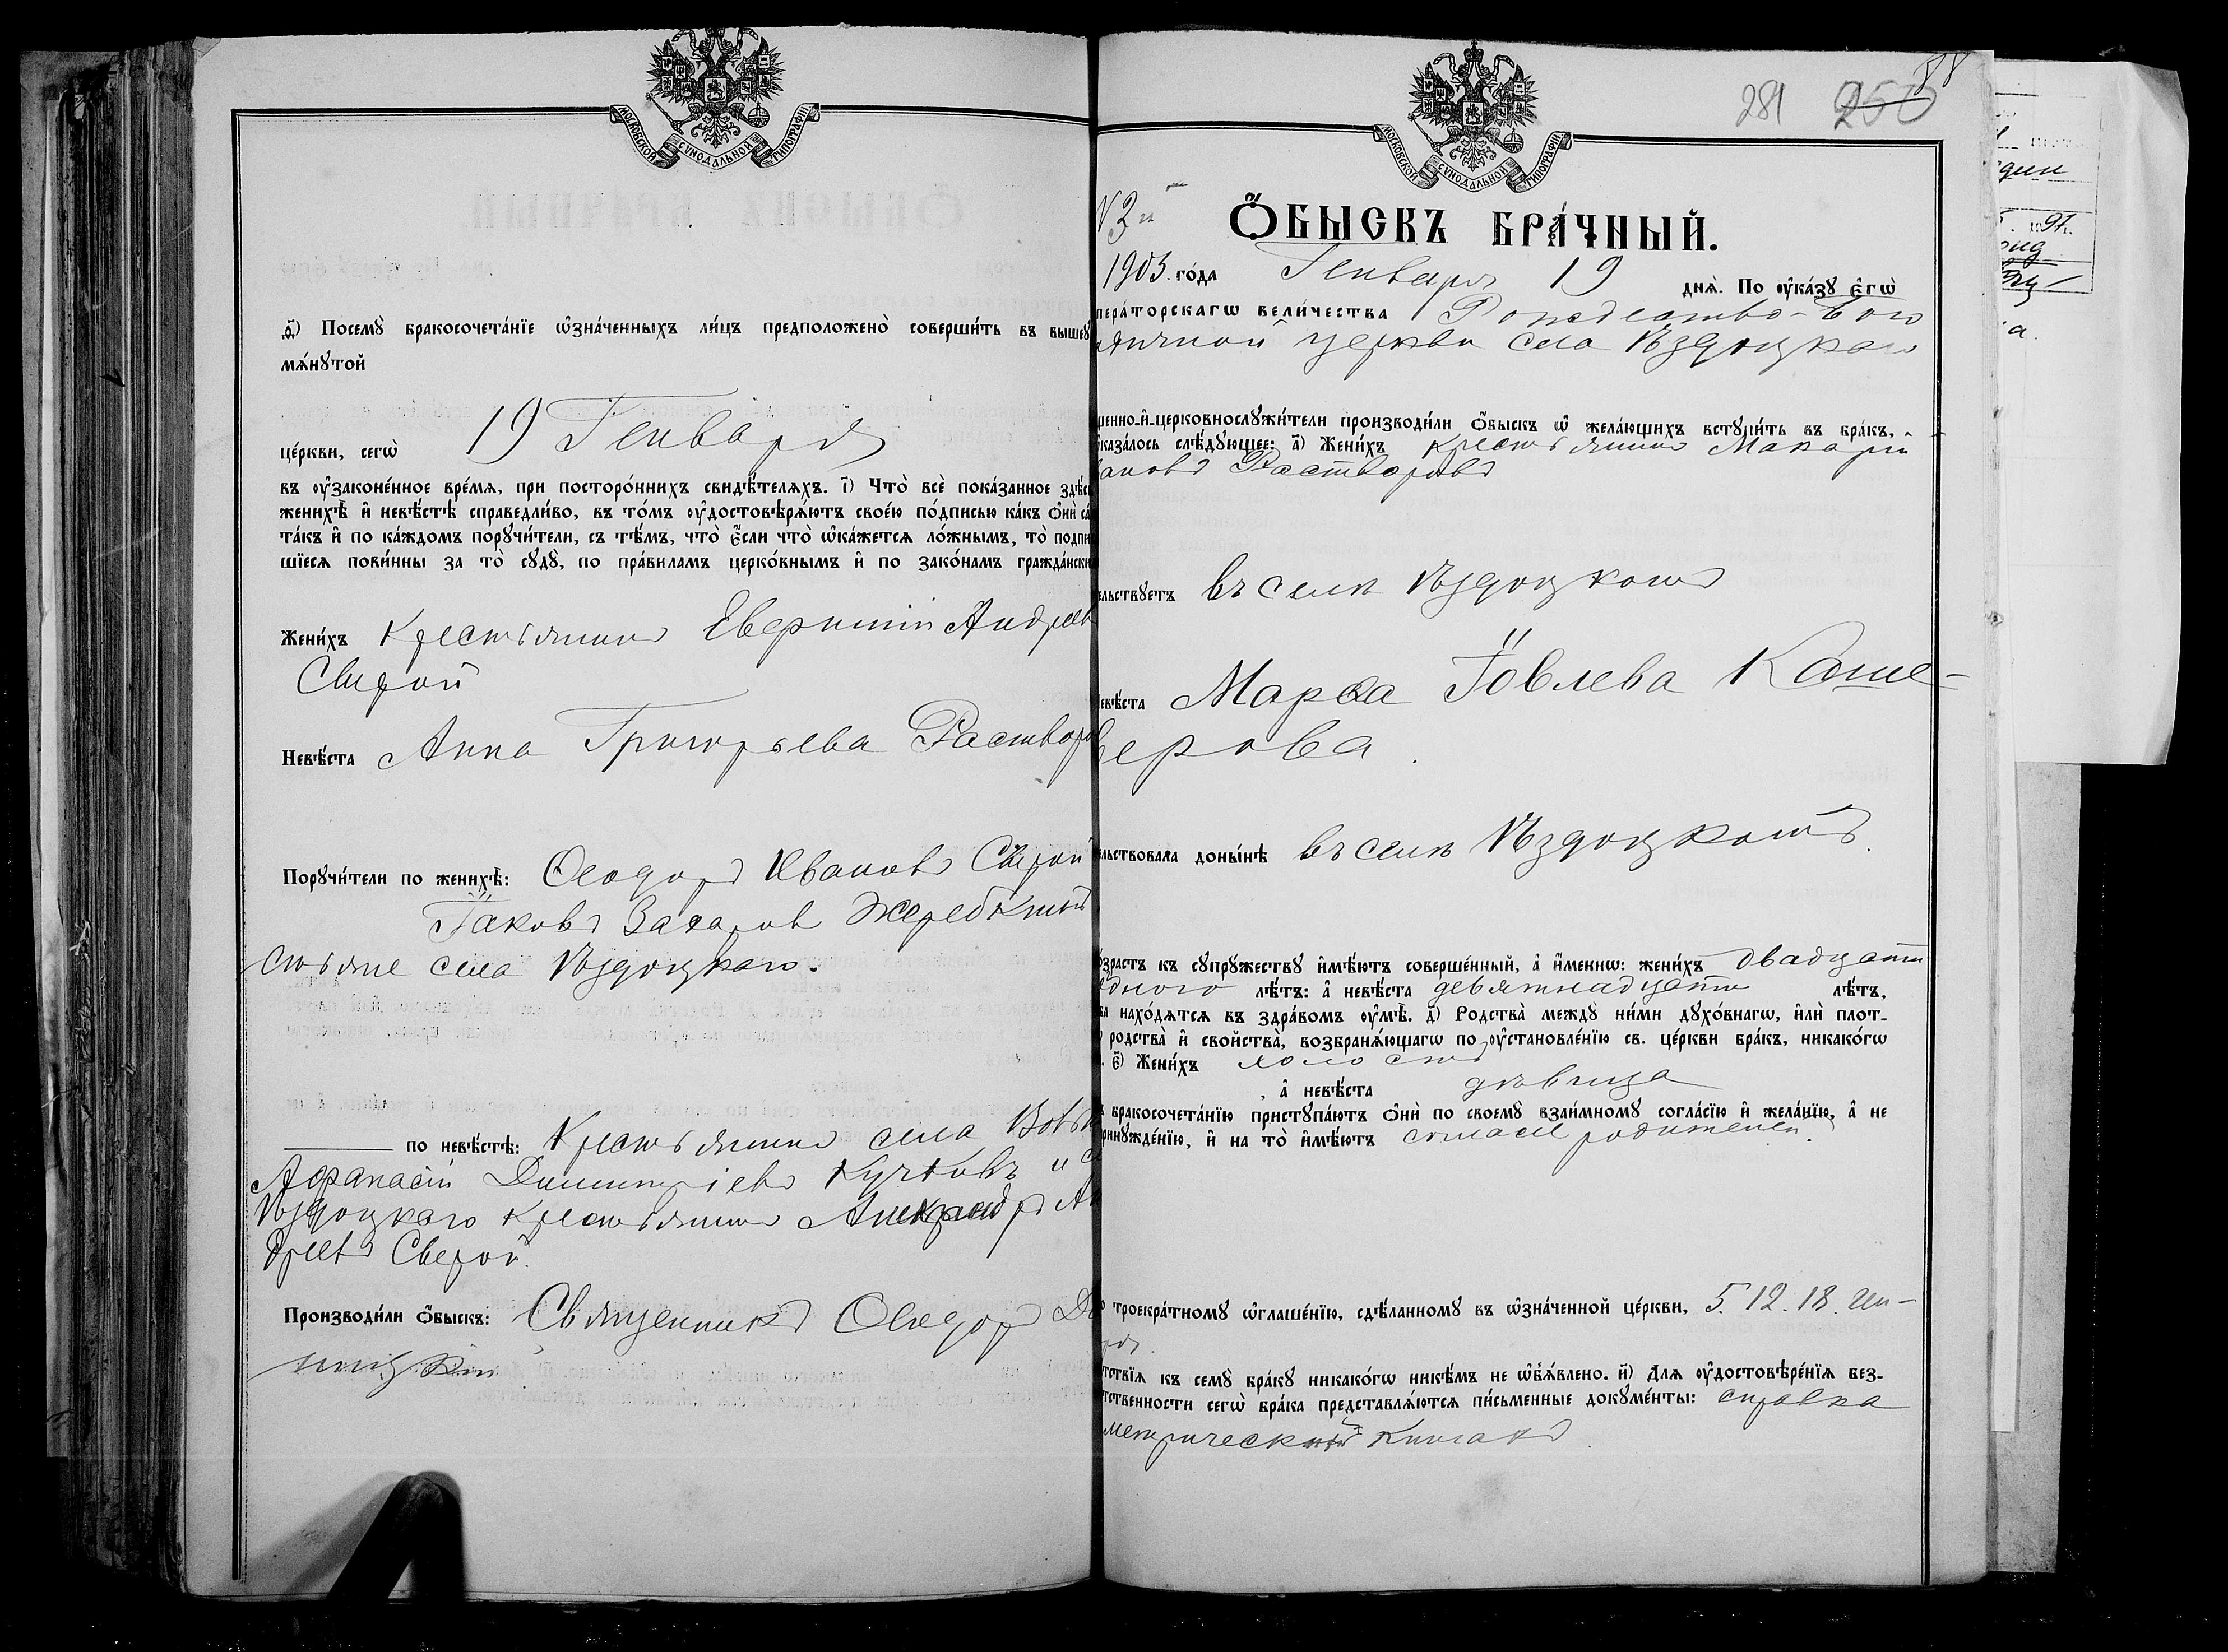 МОСКОВСКОЙ СѴНОДАЛЬНОЙ ТИПОГРАФІИ
ѳ҃) Посемꙋ̀ бракосочета́нїе ѡ҆зна́ченныхъ ли́цъ предположено̀ соверши́ть въ вышеꙋ
мѧ́нꙋтой
це́ркви, сегѡ̀ 19 Генваря
въ ᲂу҆законе́нное вре́мѧ, при посторо́ннихъ свидѣ́телѧхъ. і҃) Что̀ всѐ пока́занное здѣс
женихѣ̀ и҆ невѣ́стѣ справедли́во, въ то́мъ ᲂу҆достовѣрѧ́ютъ свое́ю по́дписью ка́къ ѻ҆нѝ са
та́къ и҆ по ка́ждомъ порꙋчи́тели, съ тѣ́мъ, что̀ є҆́сли что̀ ѡ҆ка́жетсѧ ло́жнымъ, то̀ подпи
шїесѧ пови́нны за то̀ сꙋдꙋ̀, по пра́виламъ церко́внымъ и҆ по зако́намъ гражда́нски
Жени́хъ Крестьянинъ Андреев
Сверой
Невѣ́ста Анна Григорьева Раствор
Порꙋчи́тели по женихѣ̀: Ѳеодоръ Ивановъ Сверой
Іаковъ Захаров
стьяне села Ѣздоцкаго.
по невѣ́стѣ: Крестьянинъ села
Аѳанасій Димитріевъ и с
Ѣздоцкаго крестьянинъ Александръ Ан
дреевъ Сверой.
Производи́ли ѻ҆́быскъ: Священникъ Ѳеодоръ
МОСКОВСКОЙ СѴНОДАЛЬНОЙ ТИПОГРАФІИ
281 250
N 3й
Ѻ҆́БЫСКЪ БРА́ЧНЫЙ.
1903. го́да Генваря 19 днѧ̀. По ᲂу҆ка́зꙋ є҆гѡ̀
пера́торскагѡ вели́чества Рождество-Бого
личной церкви села Ѣздоцкаго
щенно-и҆-церковнослꙋжи́тели производи́ли ѻ҆́быскъ ѡ҆ жела́ющихъ встꙋпи́ть въ бра́къ,
каза́лось слѣ́дꙋющее: а҃) Жени́хъ крестьянинъ Макарій
ановъ Растворовъ
ельствꙋетъ въ селѣ Ѣздоцкомъ
евѣ́ста Марѳа Іовлева Каше-
верова.
ельствовала доны́нѣ въ селѣ Ѣздоцкомъ.
о́зрастъ къ сꙋпрꙋжествꙋ и҆мѣ́ютъ соверше́нный, а҆ и҆́менно: жени́хъ двадцати
одного лѣ́тъ: а҆ невѣ́ста девятнадцати лѣ́тъ,
ба нахо́дѧтсѧ въ здра́вомъ ᲂу҆мѣ̀. д҃) Родства̀ междꙋ ни́ми дꙋхо́внагѡ, и҆лѝ плот-
родства̀ и҆ сво́йства̀, возбранѧ́ющагѡ по ᲂу҆становле́нїю св. це́ркви бра́къ, никако́гѡ
. є҃) Жени́хъ холостъ
, а҆ невѣ́ста дѣвица
бракосочета́нїю пристꙋпа́ютъ ѻ҆нѝ по своемꙋ̀ взаи́мномꙋ согла́сїю и҆ жела́нїю, а҆ не
ринꙋжде́нїю, и҆ на то̀ и҆мѣ́ютъ согласіе родителей.
о троекра́тномꙋ ѡ҆глаше́нїю, сдѣ́ланномꙋ въ ѡ҆зна́ченной це́ркви, 5. 12. 18. Ген-
ря.
тствїѧ къ семꙋ̀ бра́кꙋ никако́гѡ никѣ́мъ не ѡ҆б̾ѧ́влено. и҃) Длѧ ᲂу҆достовѣре́нїѧ без-
тственности сегѡ̀ бра́ка представлѧ́ютсѧ пи́сьменные докꙋме́нты: справка
метрической книгахъ.